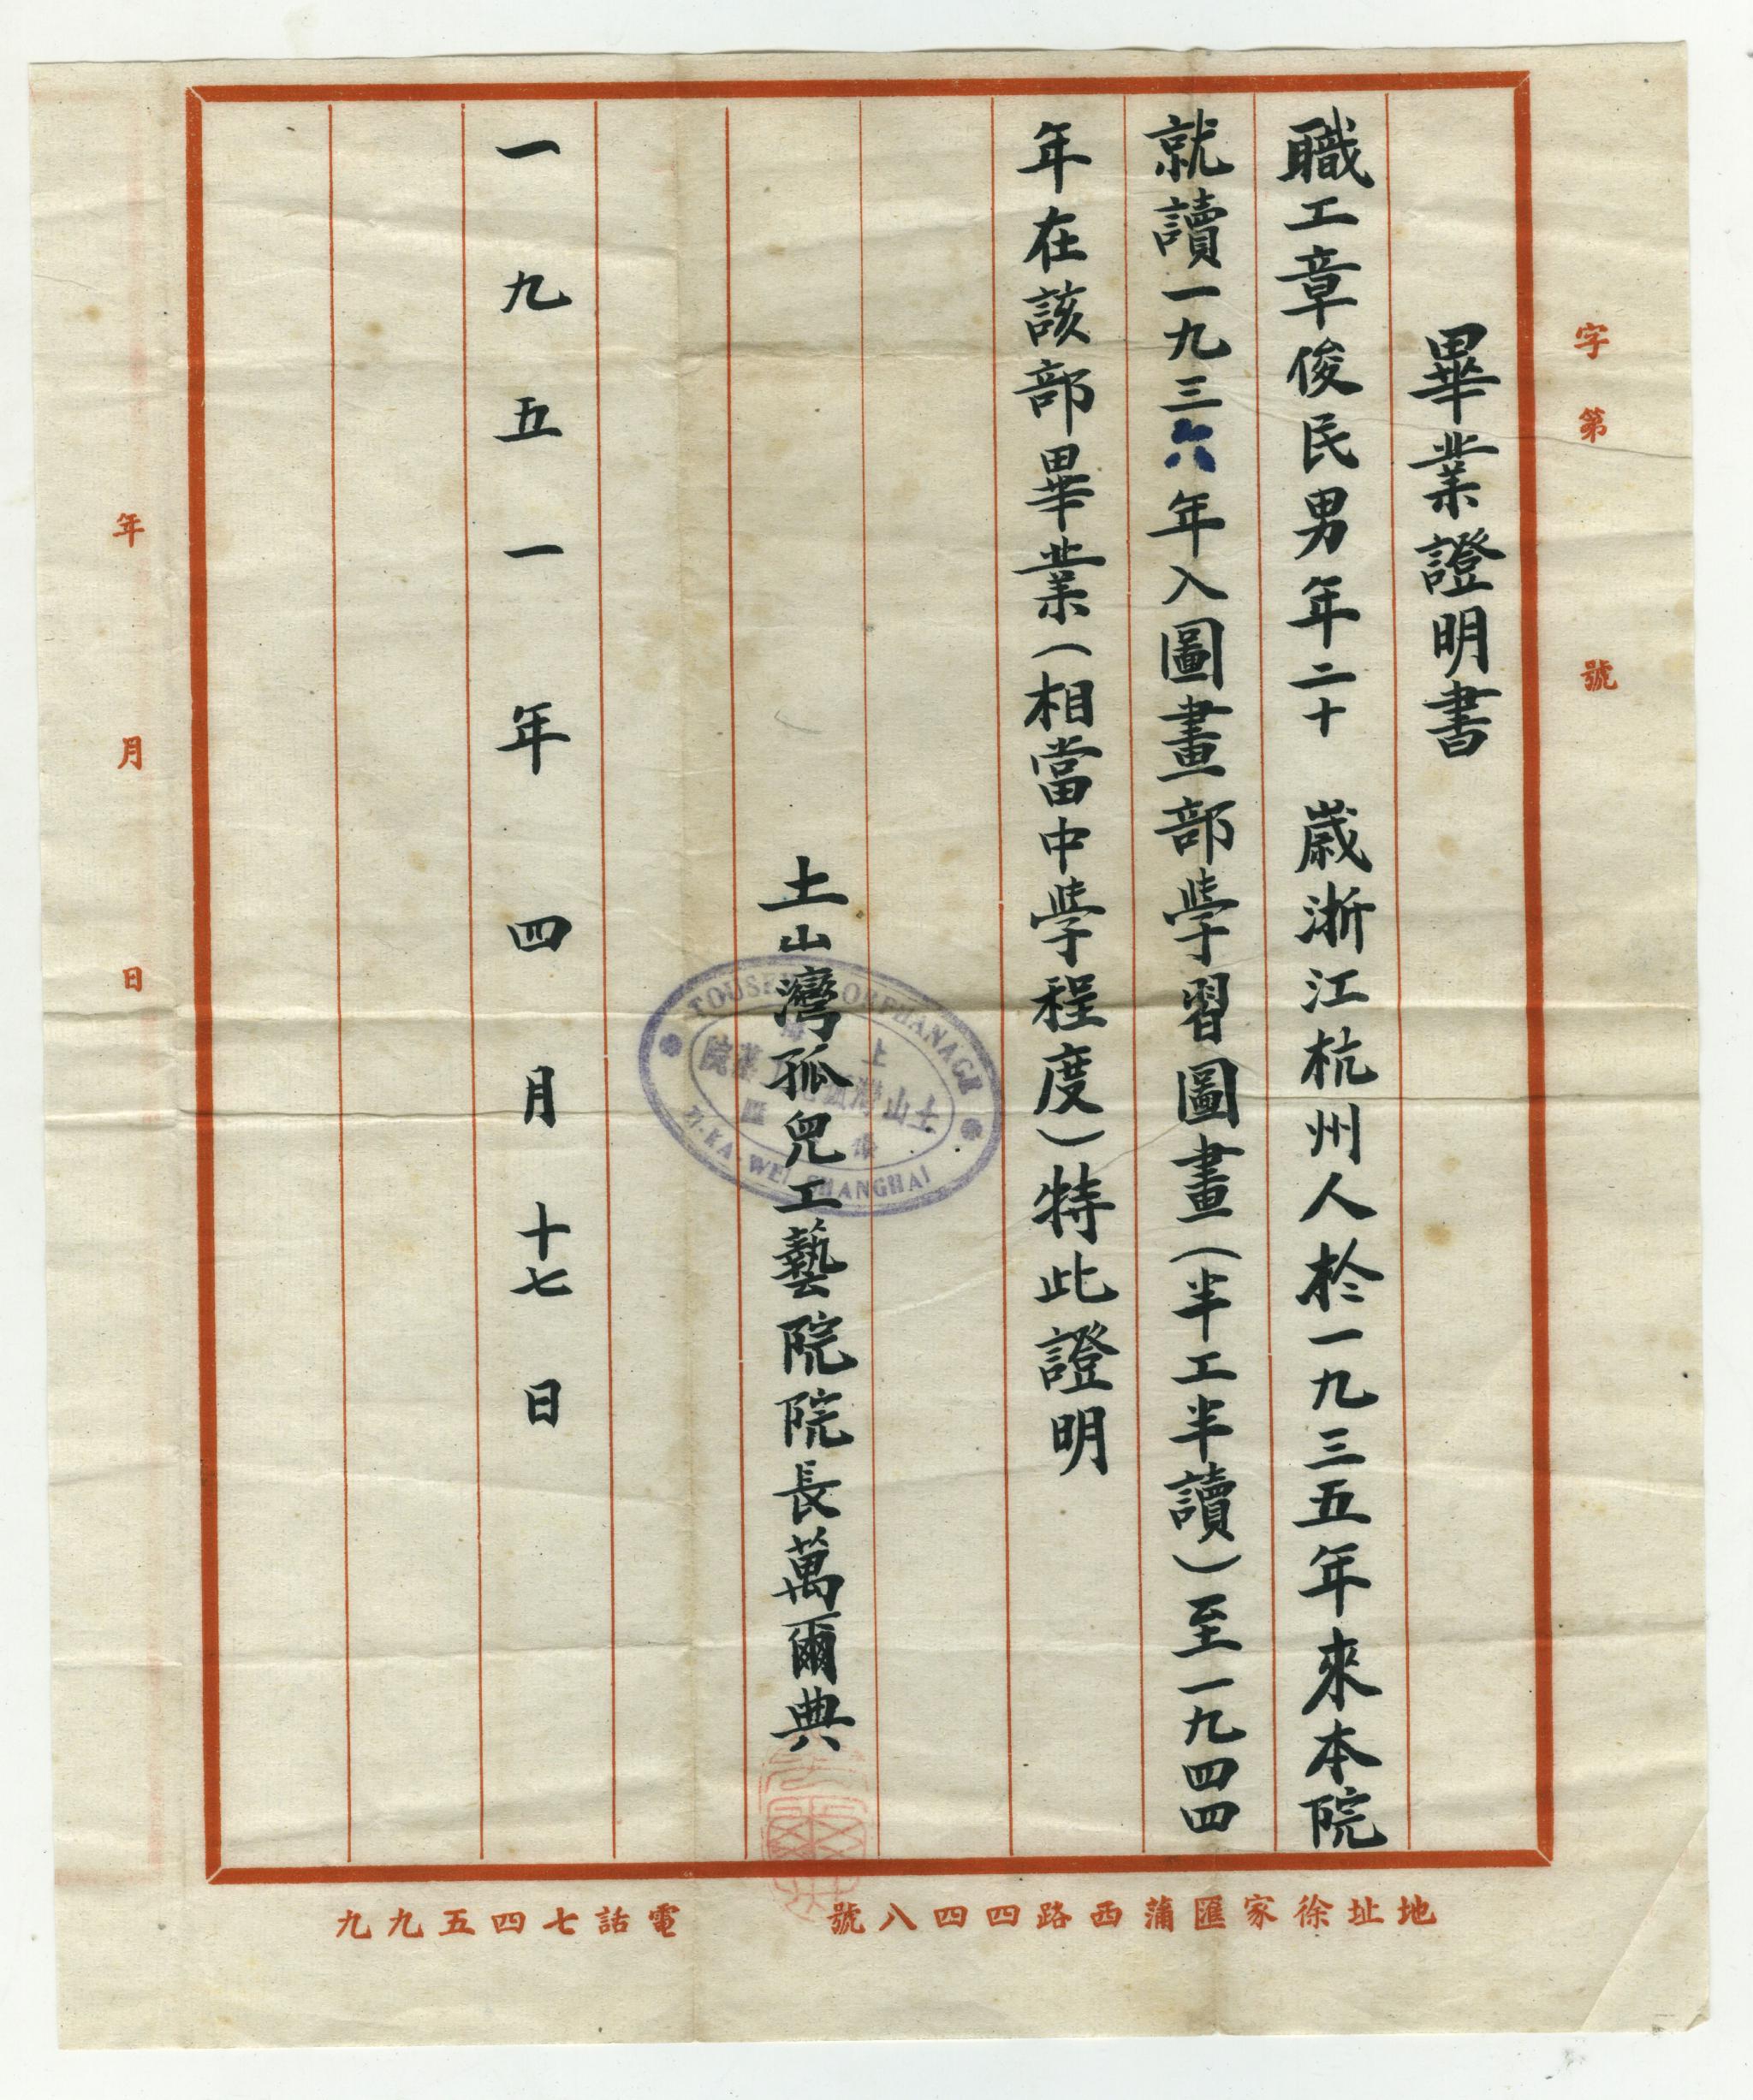 字第 號
畢業證明書
職工章俊民男年二十 歲浙江杭州人於一九三五年來本院
就讀一九三六年入圖畫部學習圖畫(半工半讀)至一九四四
年在該部畢業(相當中學程度)特此證明
土山灣孤兒工藝院院長萬爾典
一九五一年四月十七日
年 月 日
地址徐家匯蒲西路四四八號
電話七四五九九
ORPHANAGE
ZI-KA-WEI SHANGHAI